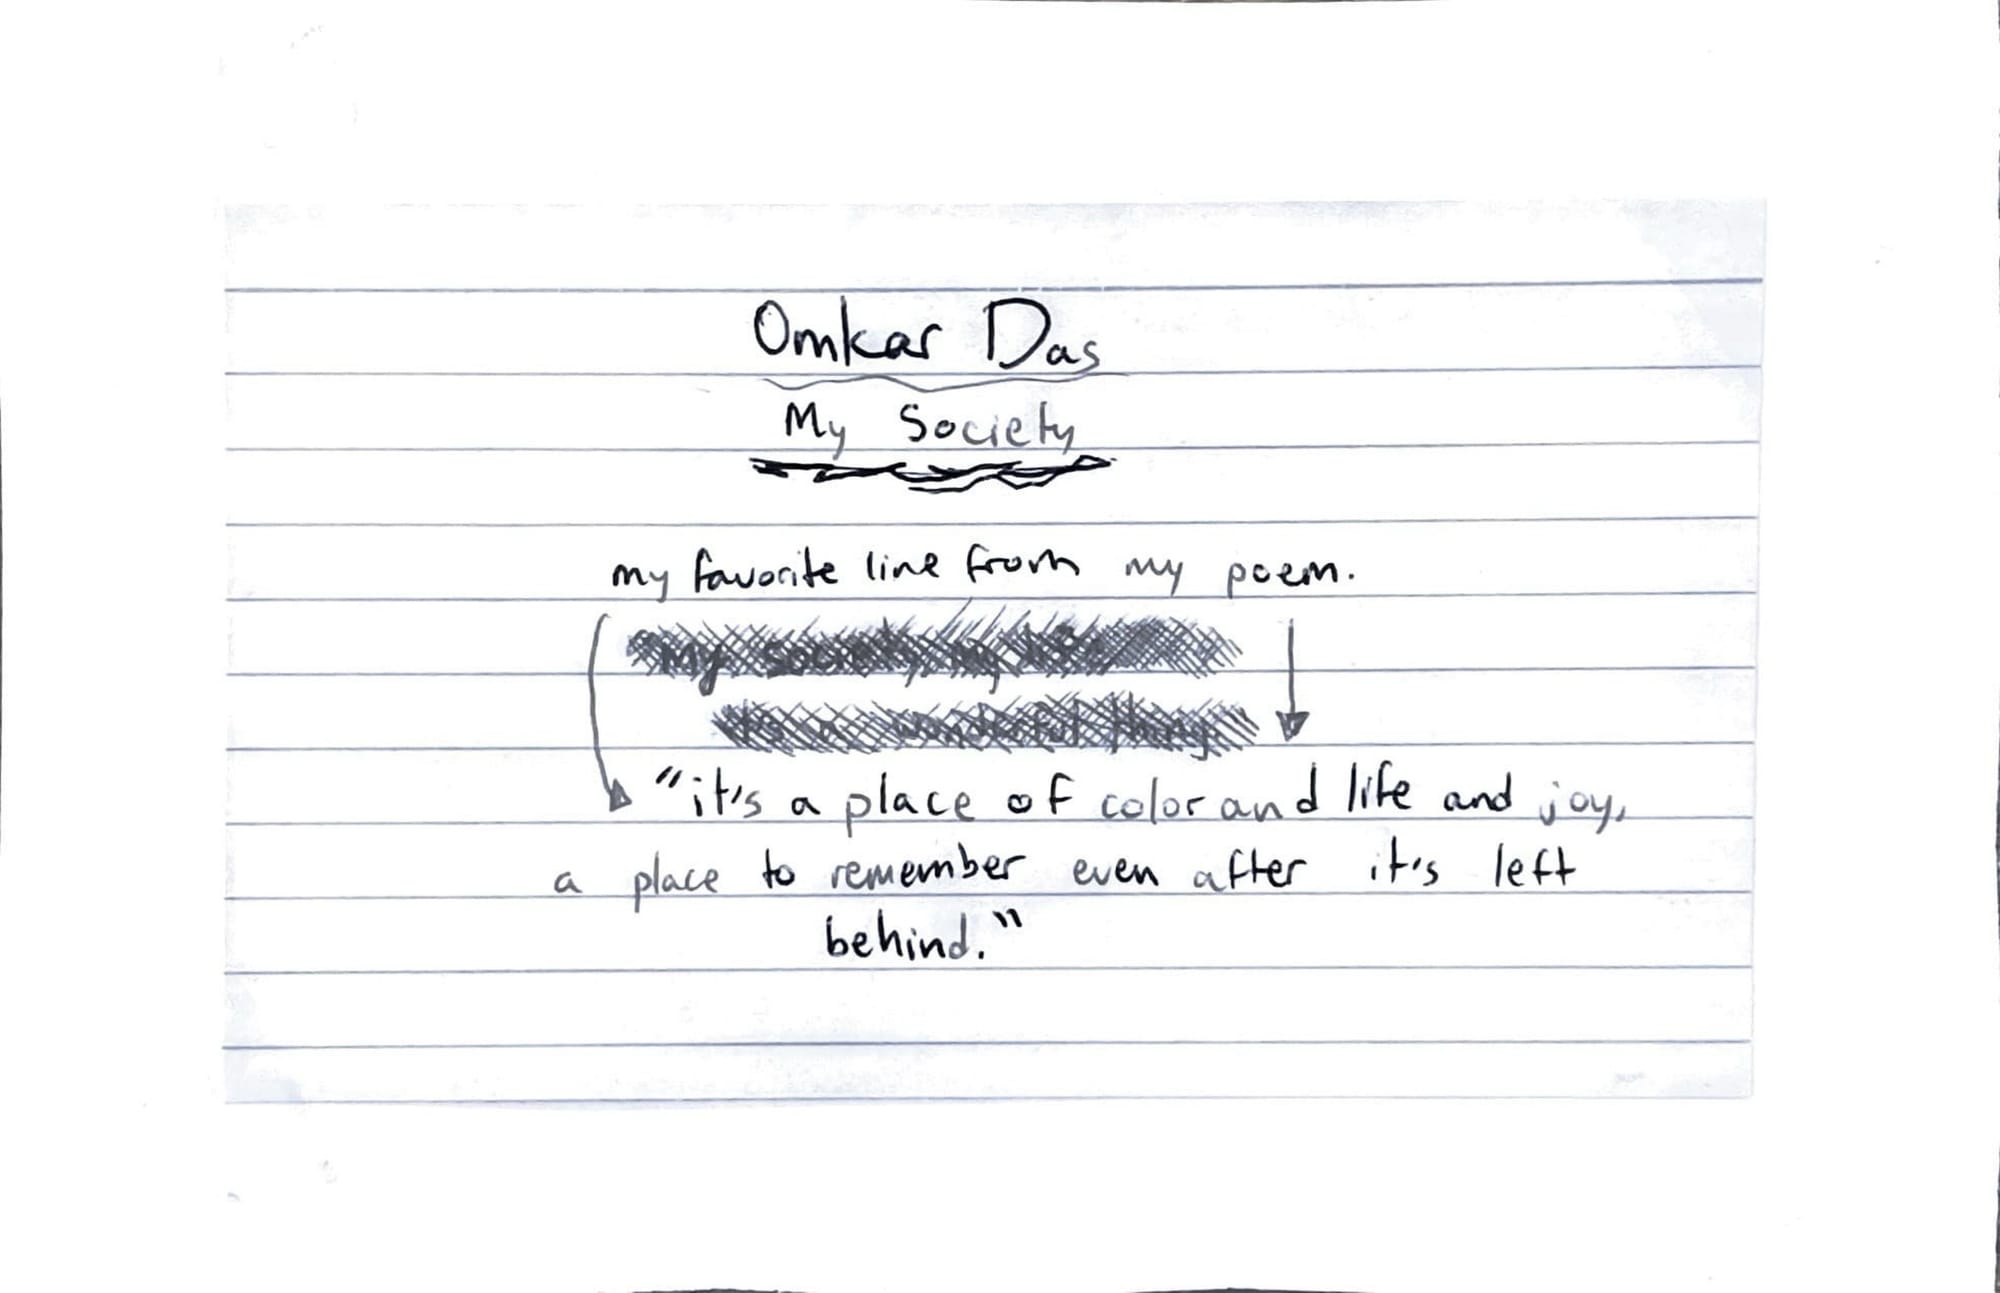 Omkar Das
My Society
my favorite line from my poem.
My society, my life
a wonderful thing
"it's a place of color and life and joy,
a place to remember even after it's left
behind."